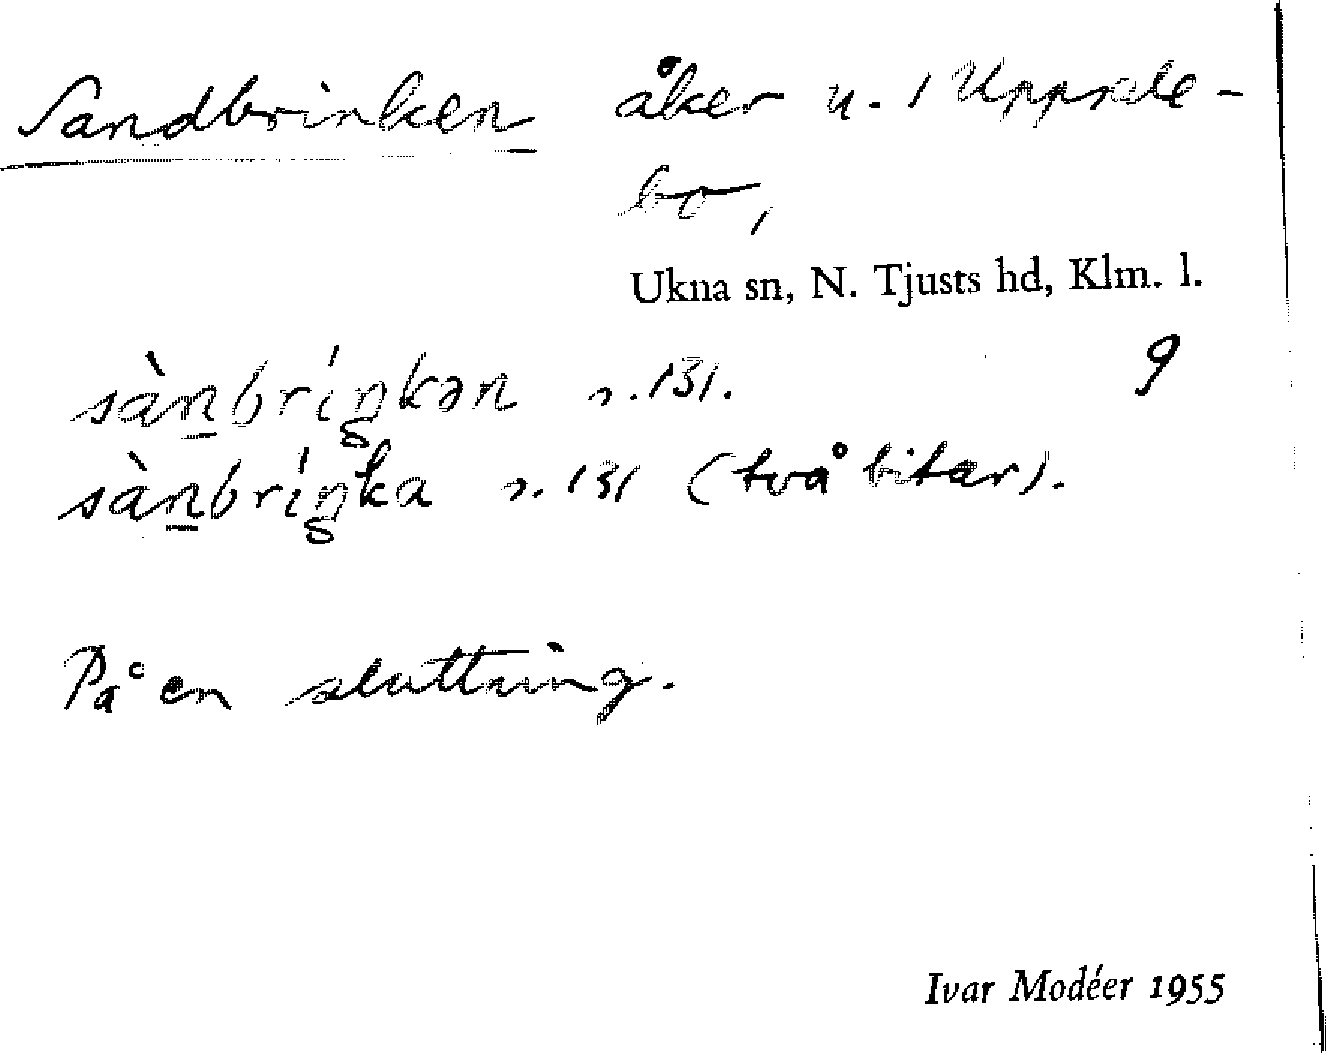 Sandbrinken åker u. 1 Uppsale-
bo,
Ukna sn, N. Tjusts hd, Klm. l.
sàn̲bríŋkən s. 131. 9
sàn̲bríŋka s. 131 (två bitar).
På en sluttning.
Ivar Modéer 1955